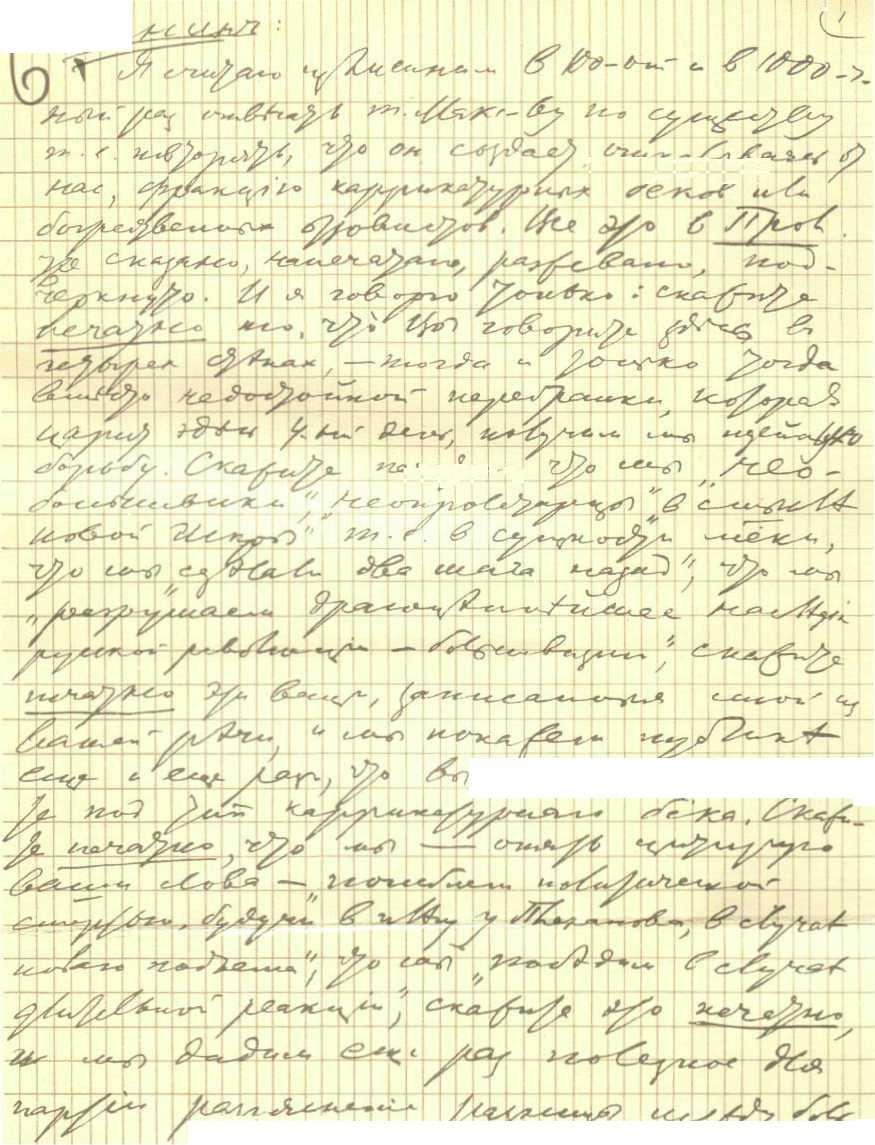 нинъ:
Я считаю излишним в 100-ый и в 1000-
ный раз отвечать т. Макс-ву по существу
т. е. повторять, что он создает, откалываясь от
нас, фракцiю каррикатурных беков или
божественных отзовистов. Все это в Прол.
уже сказано, напечатано, разжевано, под-
черкнуто. И я говорю только: скажите
печатно то, что Вы говорите здесь в
четырех стѣнах, — тогда и только тогда
вместо недостойной перебранки, которая
царит здесь 4-ый день, получим мы идейную
борьбу. Скажите что мы „нео-
большевики", „неопролетарцы" „в смыслѣ
новой Искры" т. е. в сущности меки,
что мы „сдѣлали два шага назад", что мы
„разрушаем драгоцѣннѣйшее наслѣдiе
русской революцiи — большевизм", скажите
печатно эти вещи, записанныя мной из
вашей рѣчи, и мы покажем публикѣ
еще и еще раз, что вы
те под тип каррикатурнаго бека. Скажи-
те печатно, что мы — опять цитирую
ваши слова — „погибнем политической
смертью, будучи в плѣну у Плеханова, в случаѣ
новаго подъема", что мы „победим в случаѣ
длительной реакцiи", скажите это печатно,
и мы дадим еще раз полезное для
партiи разъясненiе разницы между боль